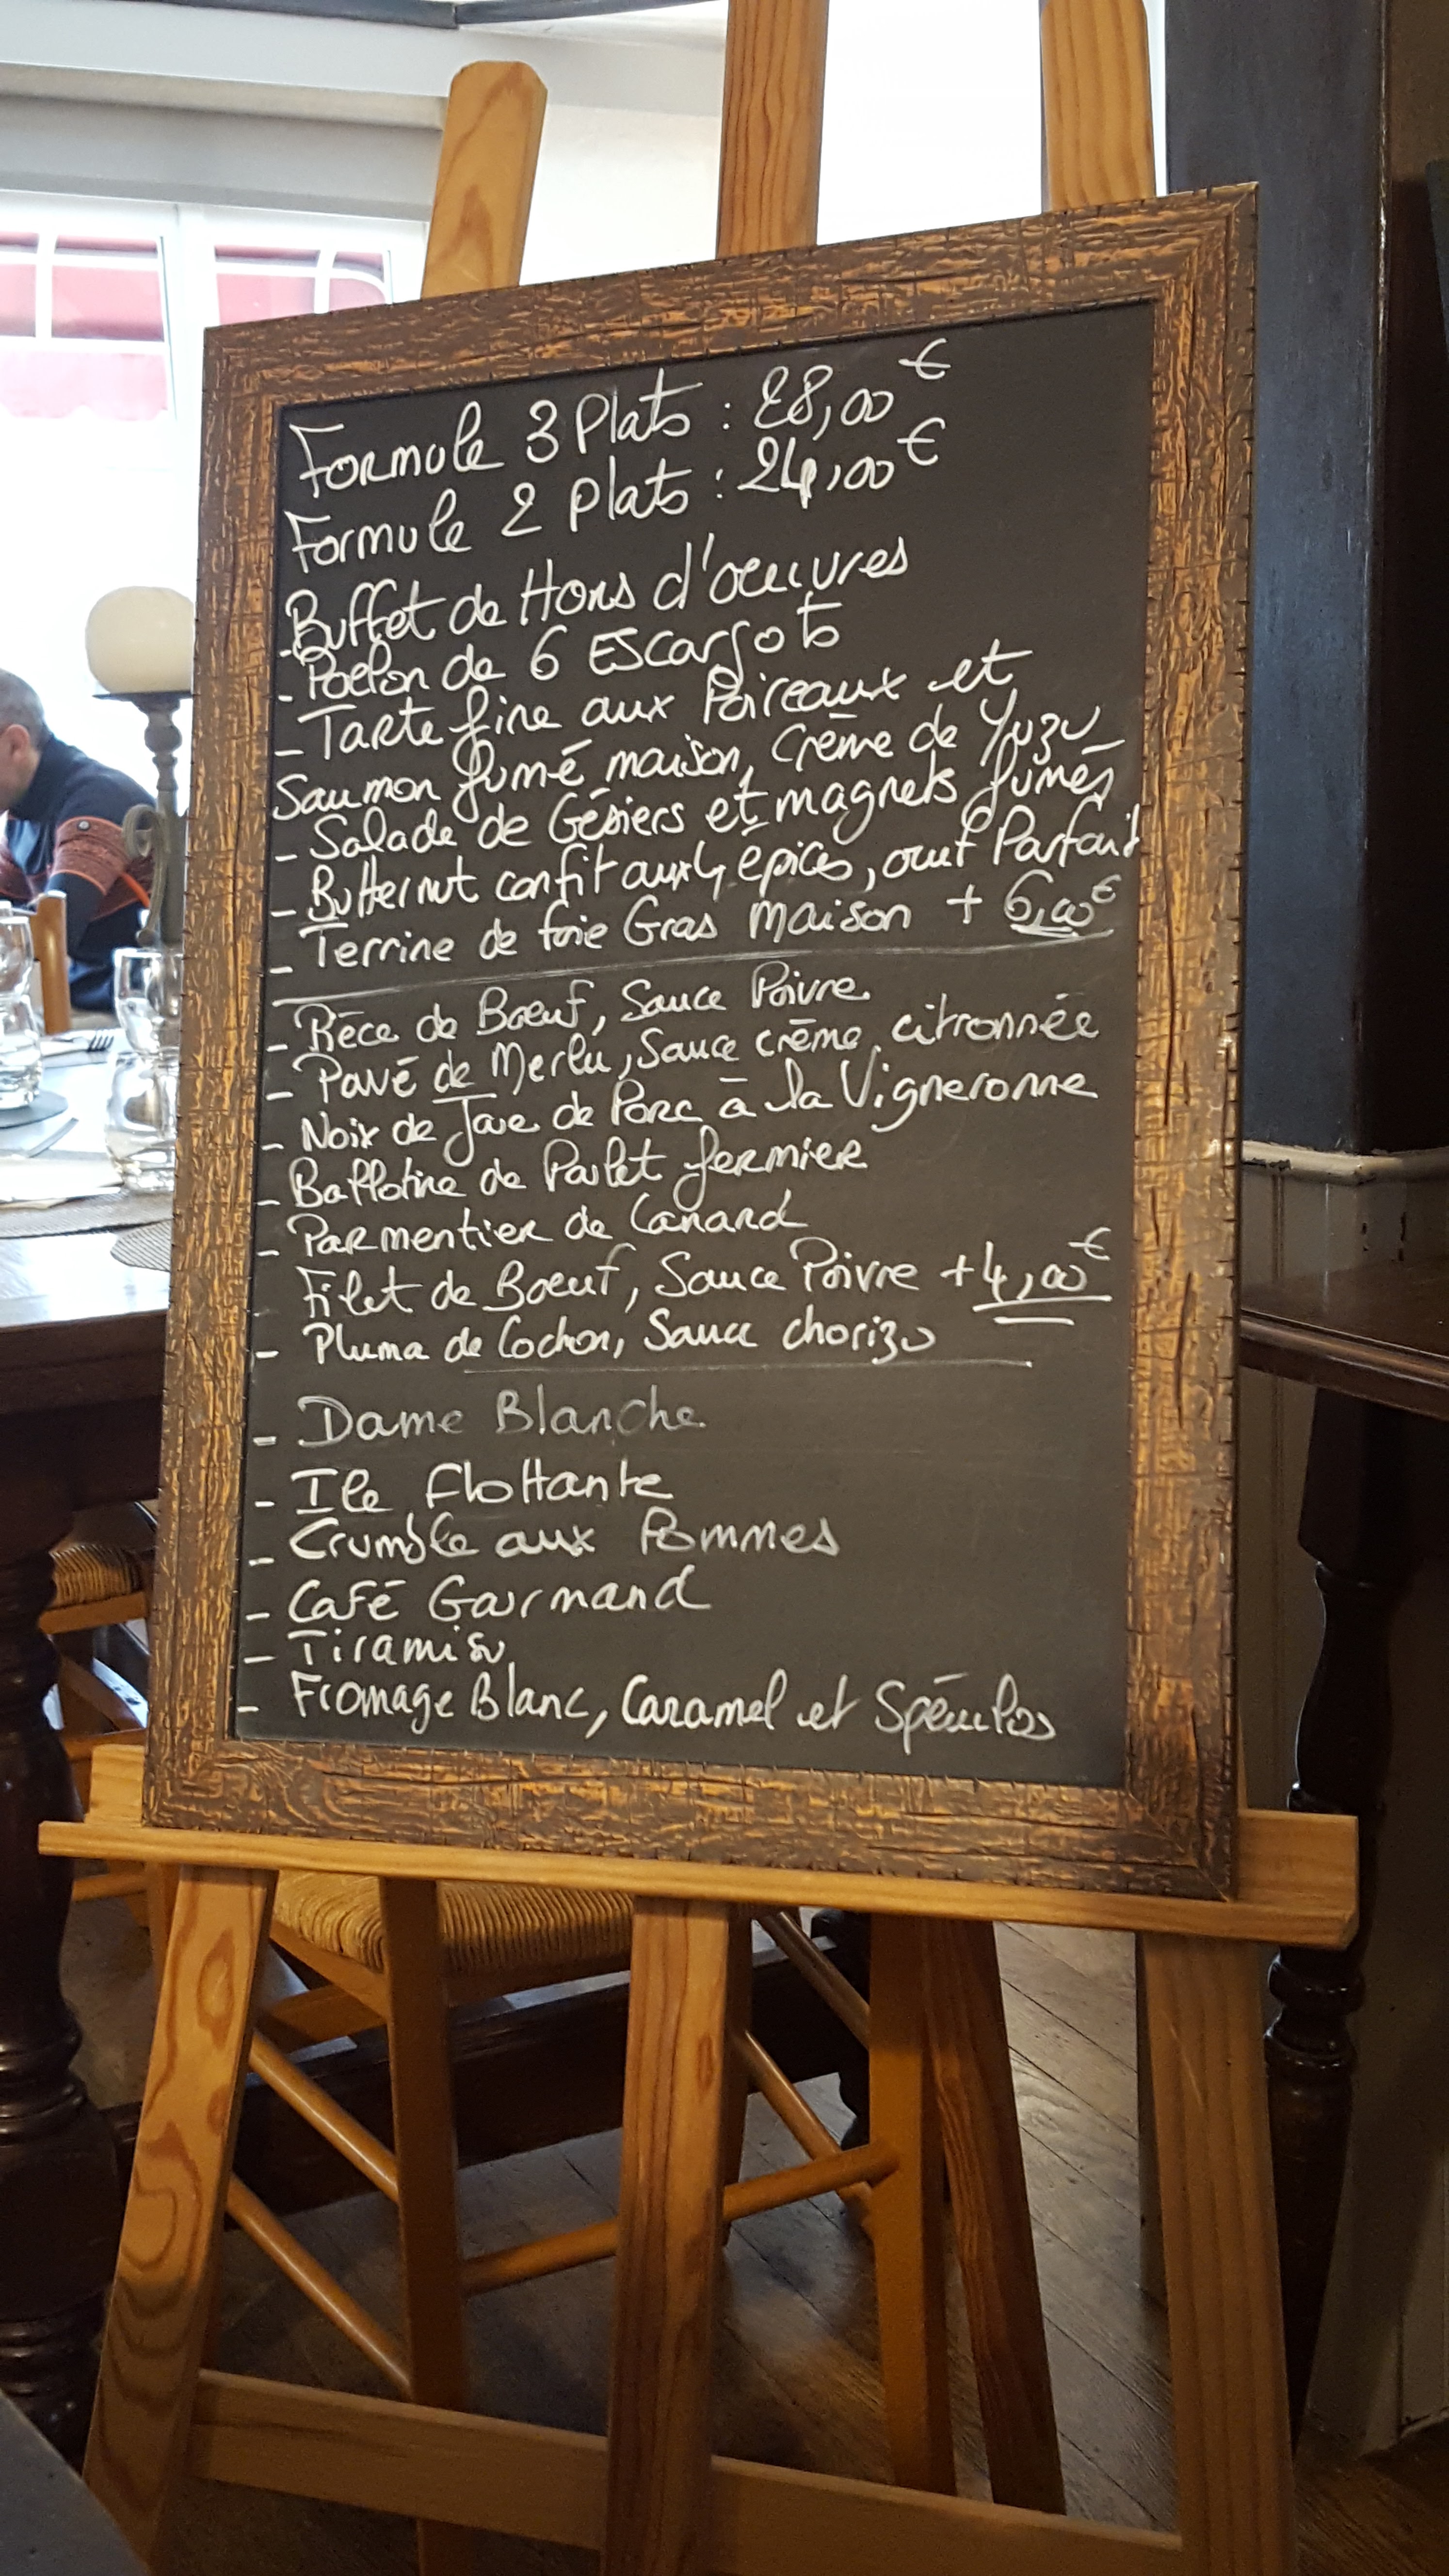 Formule 3 Plats : 28,00€
Formule 2 Plats : 24,00€
- Buffet de Hors d'oeuvres
- Poelon de 6 Escargots
- Tarte fine aux Poireaux et
Saumon fumé maison, Crème de Yuzu
- Salade de Gésiers et magrets fumés
- Butternut confit aux 4 épices, oeuf Parfait
- Terrine de foie Gras maison + 6,00€
- Pièce de Boeuf, Sauce Poivre
- Pavé de Merlu, Sauce crème citronnée
- Noix de Joue de Porc à la Vigneronne
- Ballotine de Poulet fermier
- Parmentier de Canard
- Filet de Boeuf, Sauce Poivre + 4,00€
- Pluma de Cochon, Sauce chorizo
- Dame Blanche
- Ile Flottante
- Crumble aux Pommes
- Café Gourmand
- Tiramisu
- Fromage Blanc, Caramel et Spéculos